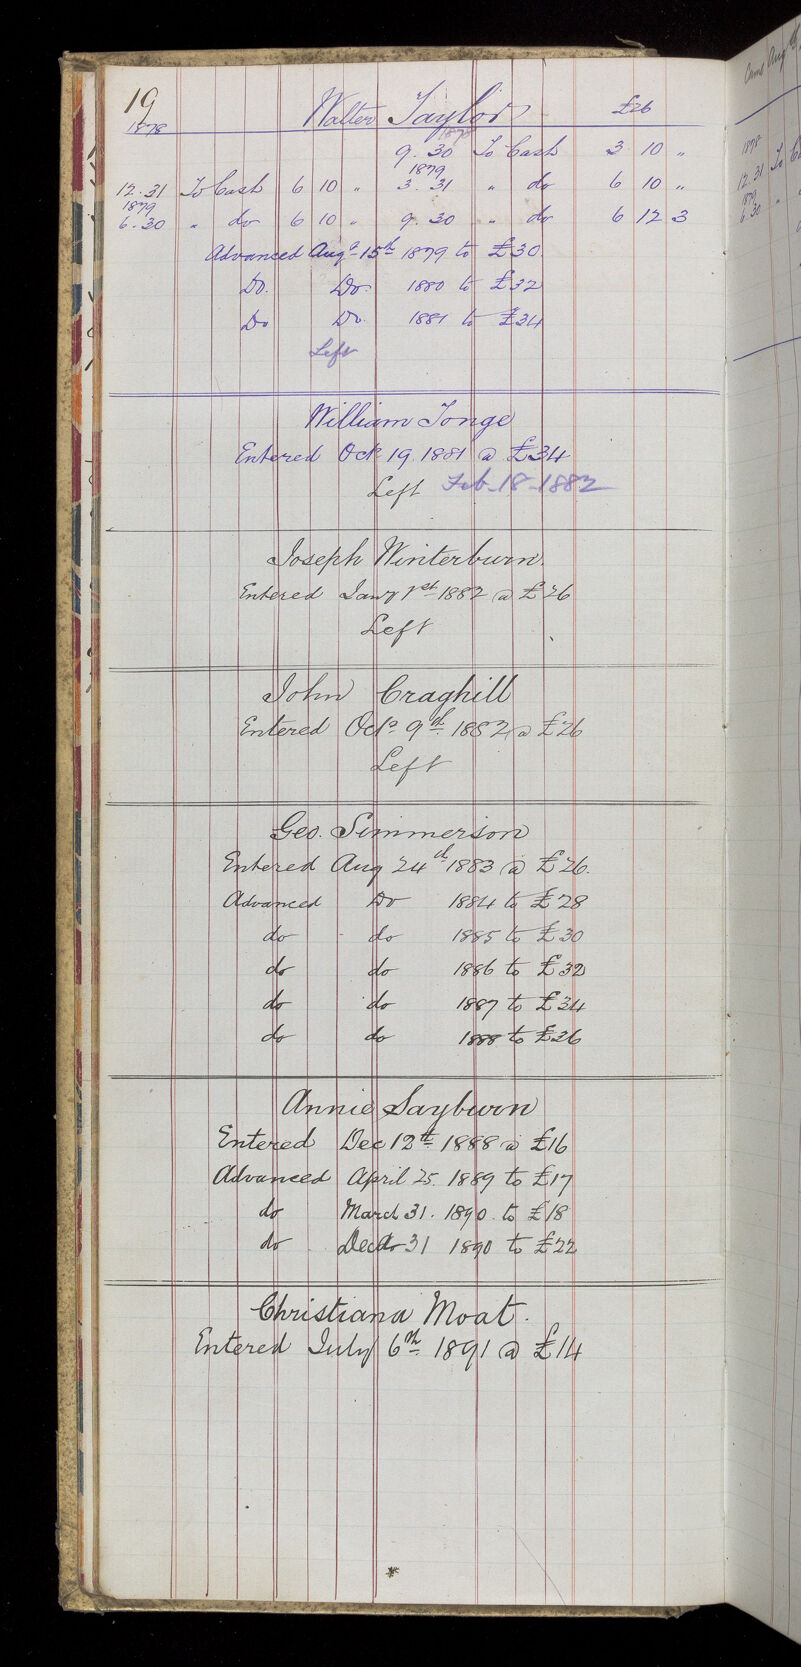 19
Walter Taylor £26
1878
1878
9.30 To Cash 3 10 "
1879
12.31 To Cash 6 10 " 3.31 " do 6 10 "
1879
6.30 " do 6 10 " 9.30 " do 6 12 3
Advanced Augt 15th 1879 to £30.
Do. Do. 1880 to £32
Do Do. 1881 to £34
Left
William Tonge
Entered Oct 19. 1881 @ £34
Left Feb-18-1882
Joseph Winterburn.
Entered Jany 1st 1882 @ £26
Left
John Craghill
Entered Octr 9th 1882 @ £26
Left
Geo. Simmerson
Entered Aug 24th 1883 @ £26.
Advanced Do 1884 to £28
do do 1885 to £30
do do 1886 to £32
do do 1887 to £34
do do 1888 to £36
Annie Sayburn
Entered Dec 12th 1888 @ £16
Advanced April 25. 1889 to £17
do March 31. 1890 to £18
do Dec 31 1890 to £22
Christiana Moat.
Entered July 6th 1891 @ £14
1878
12.31 To
1879
6.30 "